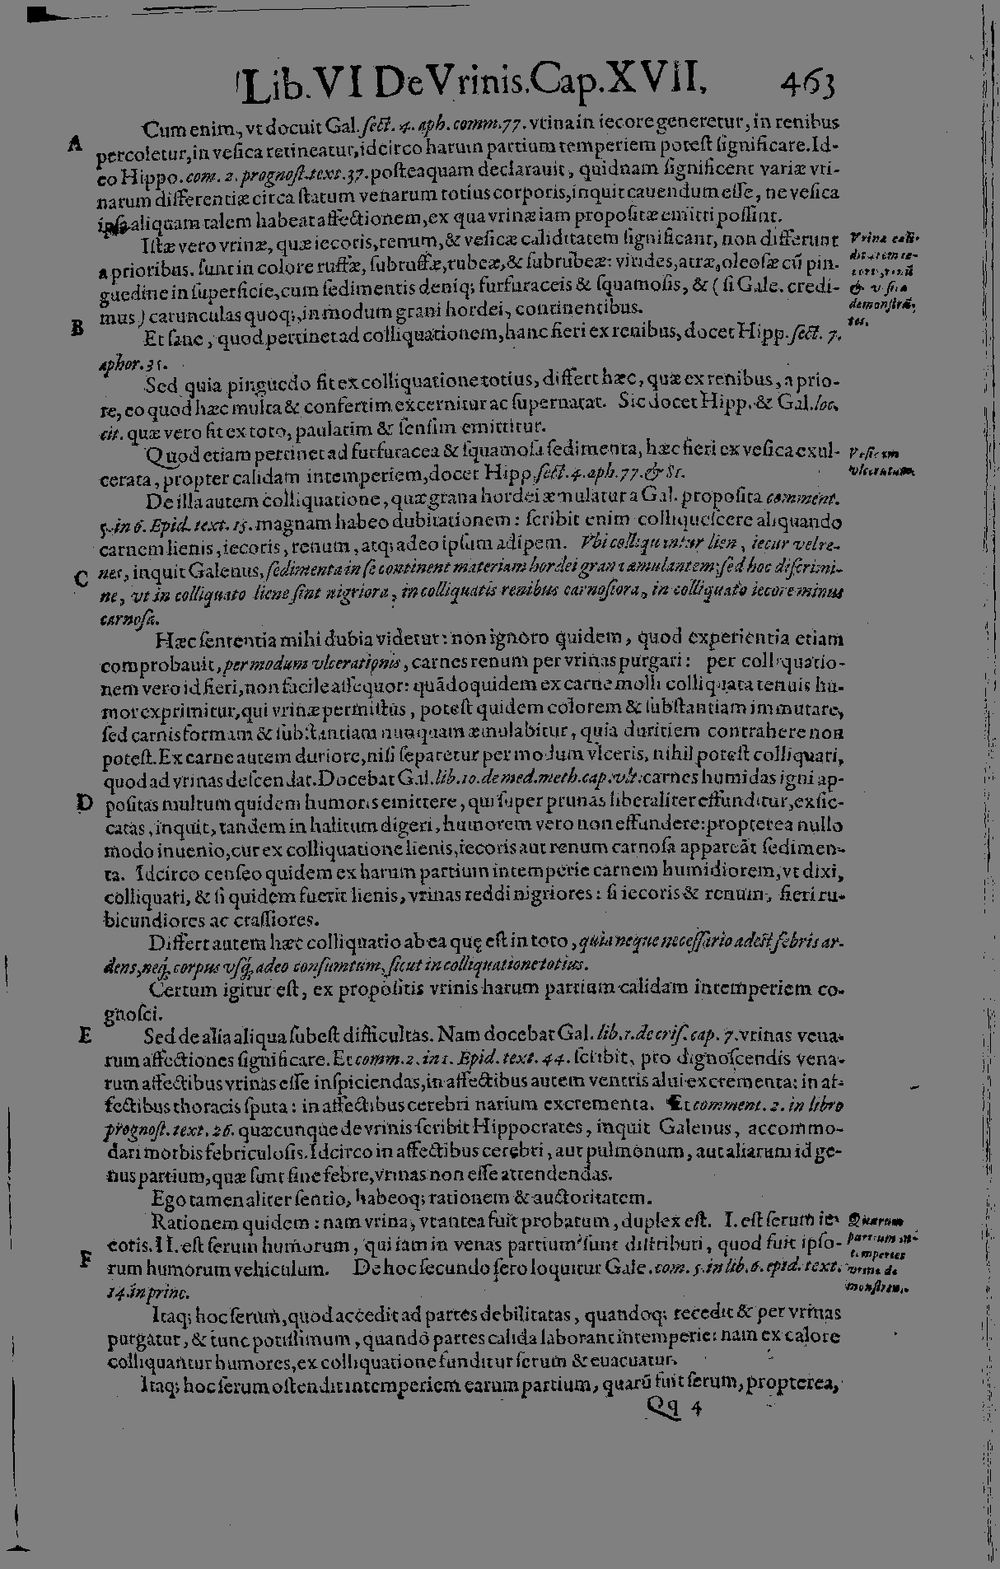 Lib. VI De Vrinis. Cap. XVII. 463
A Cum enim, vt docuit Gal. sect. 4. aph. comm. 77. vrina in iecore generetur, in renibus
percoletur, in vesica retineatur, idcirco harum partium temperiem potest significare. Id-
eo Hippo. com. 2. prognost. text. 37. posteaquam declarauit, quidnam significent variæ vri-
narum differentiæ circa statum venarum totius corporis, inquit cauendum esse, ne vesica
ipsa aliquam talem habeat affectionem, ex qua vrinæ iam propositæ emitti possint.
Istæ vero vrinæ, quæ iecoris, renum, & vesicæ caliditatem significant, non differunt
a prioribus. sunt in colore ruffæ, subruffæ, rubeæ, & subrubeæ: virides, atræ, oleosæ cũ pin-
guedine in superficie, cum sedimentis deniq; furfuraceis & squamosis, & ( si Gale. credi-
mus ) carunculas quoq;, in modum grani hordei, continentibus.
Vrina cali-
ditatem ie-
coris, renũ
& vesica
demonstrã-
tes.
B Et sane, quod pertinet ad colliquationem, hanc fieri ex renibus, docet Hipp. sect. 7.
aphor. 35.
Sed quia pinguedo fit ex colliquatione totius, differt hæc, quæ ex renibus, a prio-
re, eo quod hæc multa & confertim excernitur ac supernatat. Sic docet Hipp. & Gal. loc.
cit. quæ vero fit ex toto, paulatim & sensim emittitur.
Quod etiam pertinet ad furfuracea & squamosa sedimenta, hæc fieri ex vesica exul-
cerata, propter calidam intemperiem, docet Hipp. sect. 4. aph. 77. & 81.
Vesicam
vlceratam.
De illa autem colliquatione, quæ grana hordei æmulatur a Gal. proposita comment.
5. in 6. Epid. text. 15. magnam habeo dubitationem: scribit enim colliquescere aliquando
carnem lienis, iecoris, renum, atq; adeo ipsum adipem. Vbi colliquantur lien, iecur vel re-
C nes, inquit Galenus, sedimenta in se continent materiam hordei grana æmulantem: sed hoc discrimi-
ne, vt in colliquato liene sint nigriora, in colliquatis renibus carnosiora, in colliquato iecore minus
carnosa.
Hæc sententia mihi dubia videtur: non ignoro quidem, quod experientia etiam
comprobauit, per modum vlcerationis, carnes renum per vrinas purgari: per colliquatio-
nem vero id fieri, non facile assequor: quãdoquidem ex carne molli colliquata tenuis hu-
mor exprimitur, qui vrinæ permistus, potest quidem colorem & substantiam immutare,
sed carnis formam & substantiam nunquam æmulabitur, quia duritiem contrahere non
potest. Ex carne autem duriore, nisi separetur per modum vlceris, nihil potest colliquati,
quod ad vrinas descendat. Docebat Gal. lib. 10. de med. meth. cap. vlt: carnes humidas igni ap-
D positas multum quidem humoris emittere, qui super prunas liberaliter effunditur, exsic-
catas, inquit, tandem in halitum digeri, humorem vero non effundere: propterea nullo
modo inuenio, cur ex colliquatione lienis, iecoris aut renum carnosa appareãt sedimen-
ta. Idcirco censeo quidem ex harum partium intemperie carnem humidiorem, vt dixi,
colliquati, & si quidem fuerit lienis, vrinas reddi nigriores: si iecoris & renum, fieri ru-
bicundiores ac crassiores.
Differt autem hæc colliquatio ab ea quę est in toto, quia neque necessario adest febris ar-
dens, neq; corpus vsq; adeo consumtum, sicut in colliquatione totius.
Certum igitur est, ex propositis vrinis harum partium calidam intemperiem co-
gnosci.
E Sed de alia aliqua subest difficultas. Nam docebat Gal. lib. 1. de cris. cap. 7. vrinas vena-
rum affectiones significare. Et comm. 2. in 1. Epid. text. 44. scribit, pro dignoscendis vena-
rum affectibus vrinas esse inspiciendas, in affectibus autem ventris alui excrementa: in af-
fectibus thoracis sputa: in affectibus cerebri narium excrementa. Et comment. 2. in libro
prognost. text. 26. quæcunque de vrinis scribit Hippocrates, inquit Galenus, accommo-
dari morbis febriculosis. Idcirco in affectibus cerebri, aut pulmonum, aut aliarum id ge-
nus partium, quæ sunt sine febre, vrinas non esse attendendas.
Ego tamen aliter sentio, habeoq; rationem & auctoritatem.
Rationem quidem: nam vrina, vt antea fuit probatum, duplex est. I. est serum ie-
coris. II. est serum humorum, qui iam in venas partium sunt distributi, quod fuit ipso-
F rum humorum vehiculum. De hoc secundo sero loquitur Gale. com. 5. in lib. 6. epid. text.
14. in princ.
Quarum
partium in-
temperies
vrina de
monstren.
Itaq; hoc serum, quod accedit ad partes debilitatas, quandoq; recedit & per vrinas
purgatur, & tunc potissimum, quando partes calida laborant intemperie: nam ex calore
colliquantur humores, ex colliquatione funditur serum & euacuatur.
Itaq; hoc serum ostendit intemperiem earum partium, quarũ fuit serum, propterea,
Qq 4